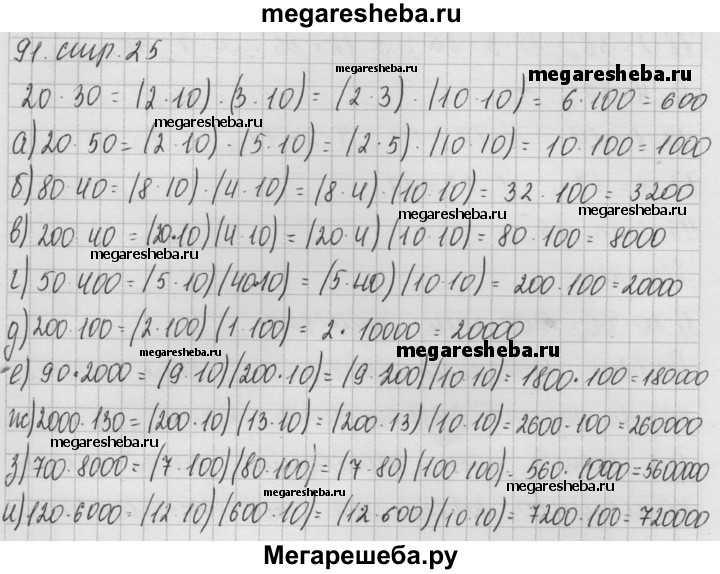 megaresheba.ru
91. стр. 25
megaresheba.ru
megaresheba.ru
20 · 30 = (2 · 10) · (3 · 10) = (2 · 3) · (10 · 10) = 6 · 100 = 600
megaresheba.ru
а) 20 · 50 = (2 · 10) · (5 · 10) = (2 · 5) · (10 · 10) = 10 · 100 = 1000
б) 80 · 40 = (8 · 10) · (4 · 10) = (8 · 4) · (10 · 10) = 32 · 100 = 3200
megaresheba.ru
megaresheba.ru
в) 200 · 40 = (20 · 10) (4 · 10) = (20 · 4) (10 · 10) = 80 · 100 = 8000
megaresheba.ru
г) 50 · 400 = (5 · 10) (40 · 10) = (5 · 40) (10 · 10) = 200 · 100 = 20000
д) 200 · 100 = (2 · 100) (1 · 100) = 2 · 10000 = 20000
megaresheba.ru
megaresheba.ru
е) 90 · 2000 = (9 · 10) (200 · 10) = (9 · 200) (10 · 10) = 1800 · 100 = 180000
ж) 2000 · 130 = (200 · 10) (13 · 10) = (200 · 13) (10 · 10) = 2600 · 100 = 260000
megaresheba.ru
з) 700 · 8000 = (7 · 100) (80 · 100) = (7 · 80) (100 · 100) = 560 · 10000 = 5600000
megaresheba.ru
megaresheba.ru
и) 120 · 6000 = (12 · 10) (600 · 10) = (12 · 600) (10 · 10) = 7200 · 100 = 720000
Мегарешеба.ру